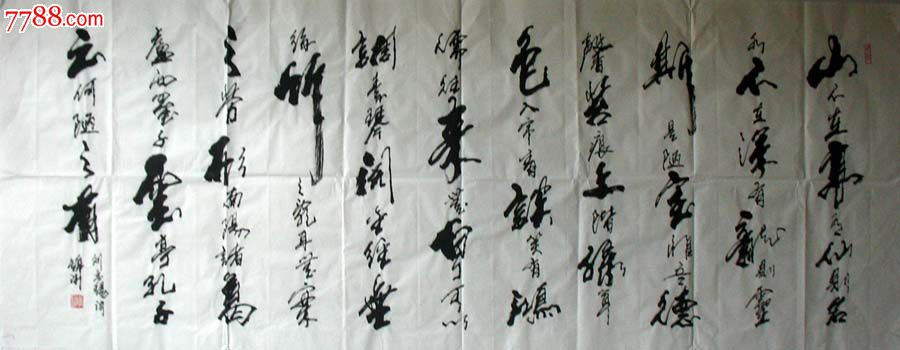 7788.com
山不在高有仙则名
水不在深有龙则灵
斯是陋室惟吾德
馨苔痕上阶绿草
色入帘青談笑有鸿
儒往来無白丁可以
調素琴阅金经無
丝竹之乱耳無案
之劳形南阳諸葛
庐西蜀子云亭孔子
云何陋之有
刘禹锡词